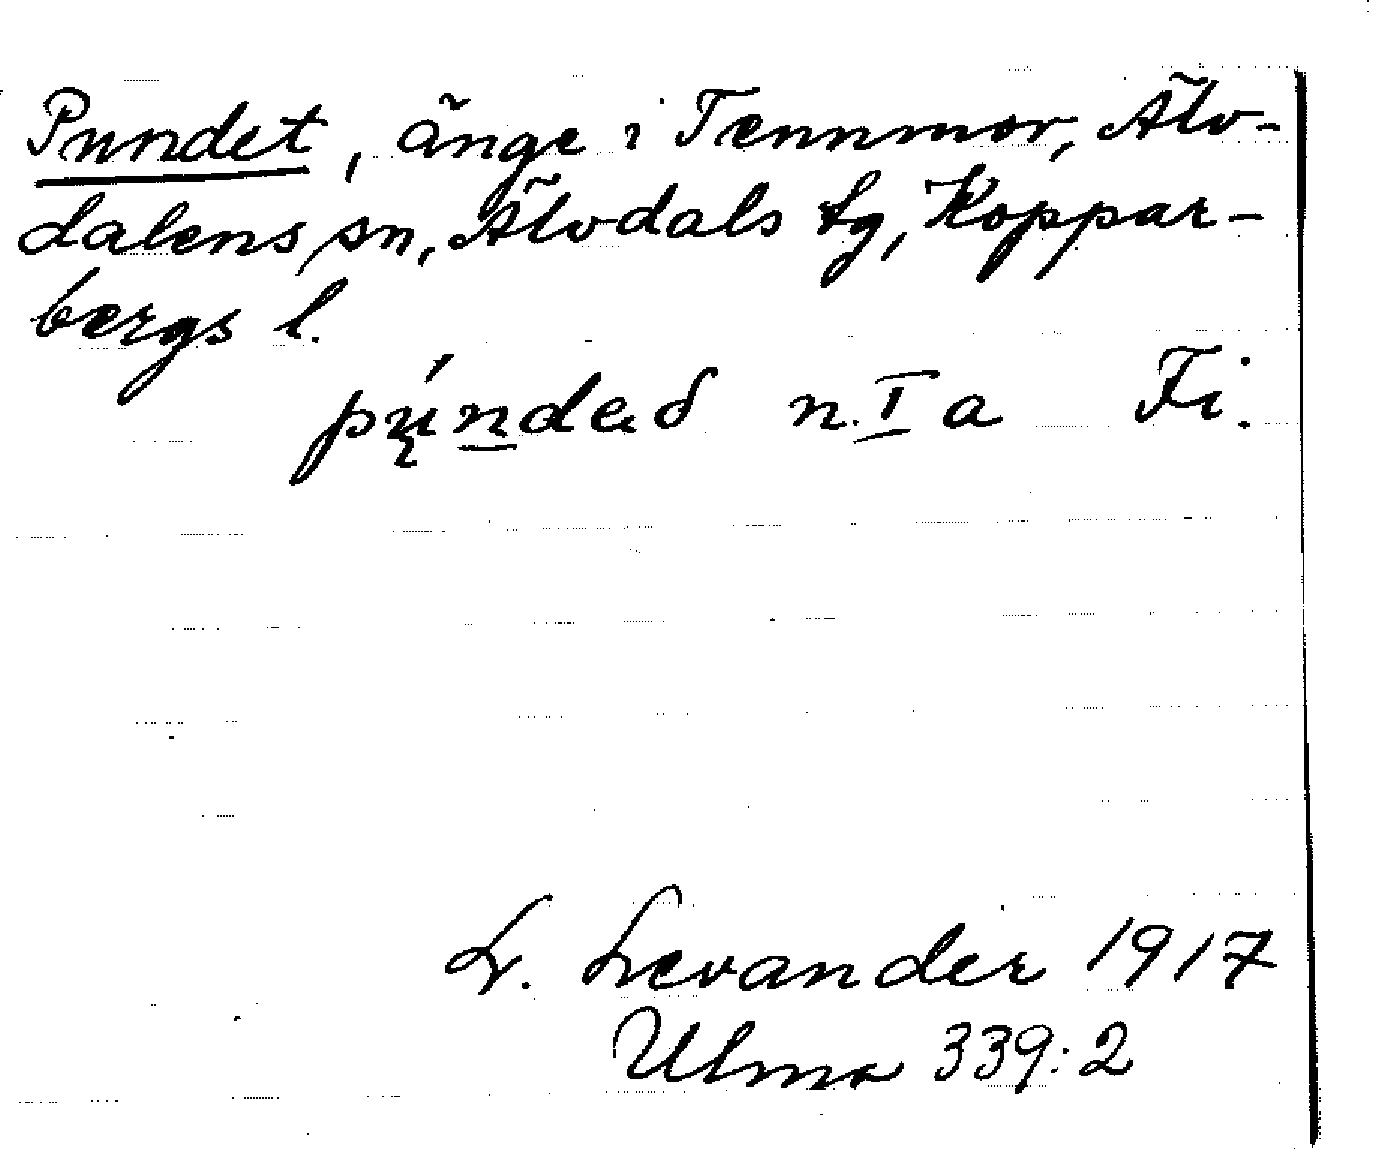 Pundet, änge i Tennmor, Älv-
dalens sn, Älvdals tg, Koppar-
bergs l.
pų́nded n. I a Fi.
L. Levander 1917
Ulma 339:2